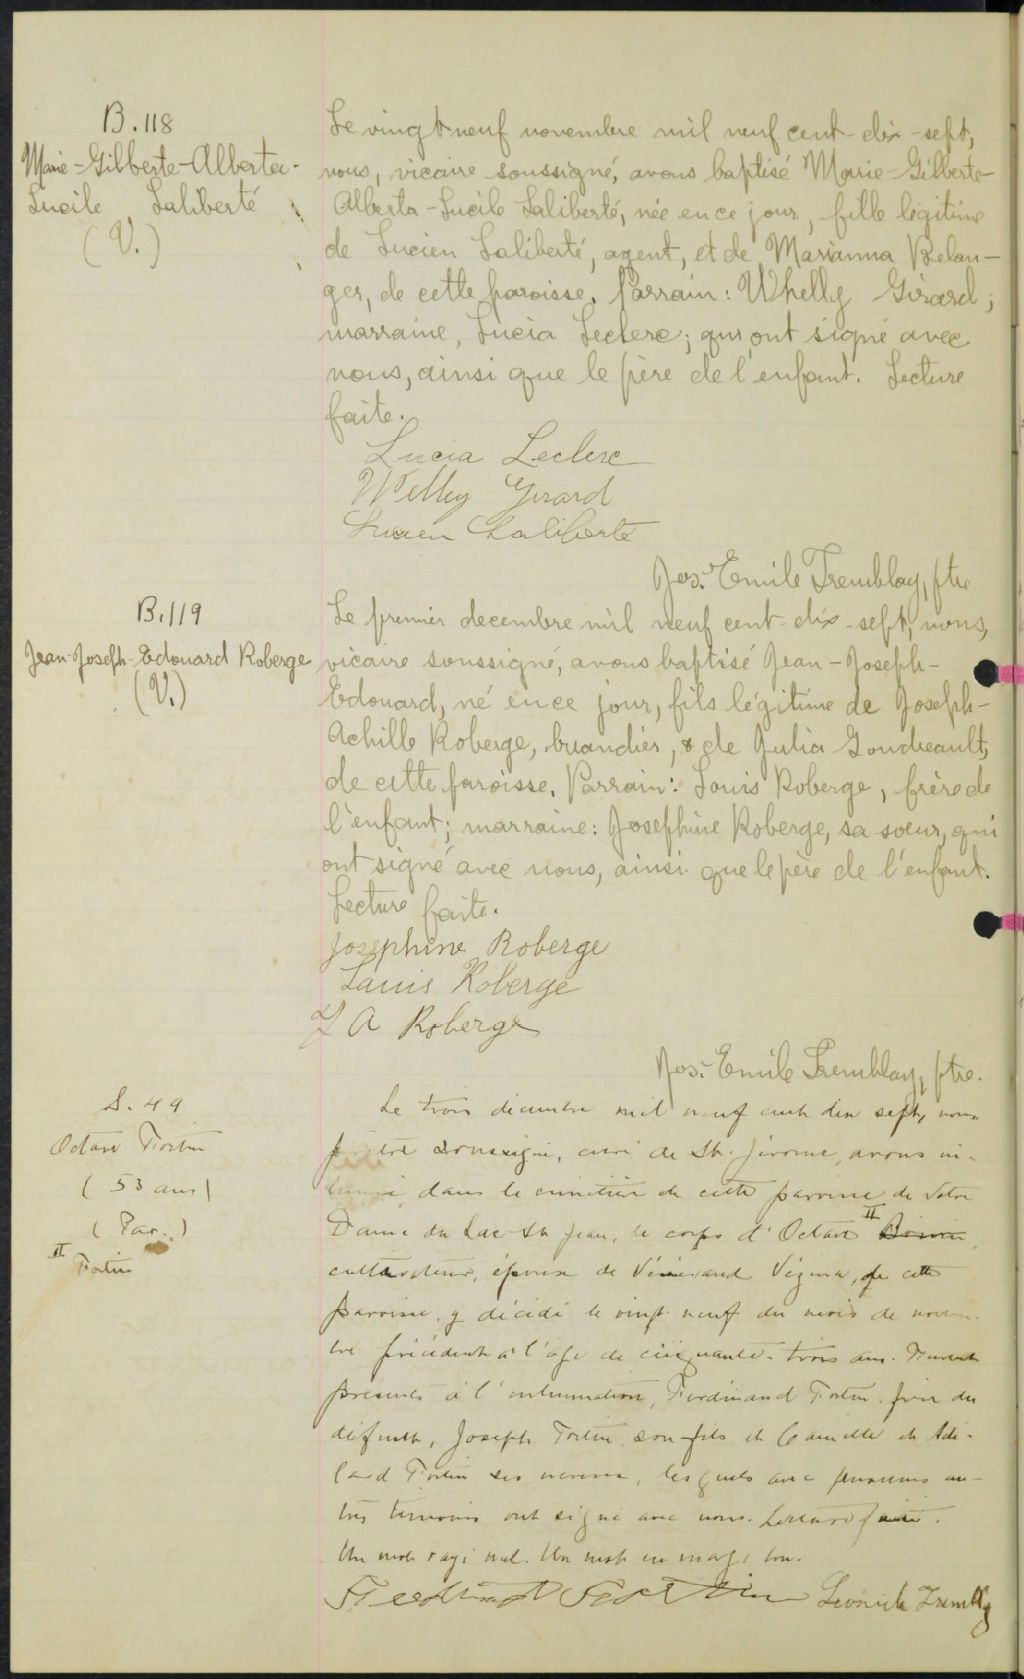 B.118
Marie-Gilberte-Alberta-
Lucile Laliberté
(V.)
Le vingt neuf novembre mil neuf cent-dix-sept,
nous, vicaire soussigné, avons baptisé Marie-Gilberte-
Alberta-Lucile Laliberté, née en ce jour, fille légitime
de Lucien Laliberté, agent, et de Marianna Belan-
ger, de cette paroisse. Parrain: Whelly Girard;
marraine, Lucia Leclerc; qui ont signé avec
nous, ainsi que le père de l'enfant. Lecture
faite.
Lucia Leclerc
Welley Girard
Lucien Laliberté
Jos. Emile Tremblay, ptre
B.119
Jean-Joseph-Edouard Roberge
(V.)
Le premier decembre mil neuf cent-dix-sept, nous,
vicaire soussigné, avons baptisé Jean-Joseph-
Edouard, né en ce jour, fils légitime de Joseph-
Achille Roberge, buandier, & de Julia Goudreault,
de cette paroisse. Parrain: Louis Roberge, frère de
l'enfant; marraine: Josephine Roberge, sa soeur, qui
ont signé avec nous, ainsi que le père de l'enfant.
Lecture faite.
Josephine Roberge
Louis Roberge
J A Roberge
Jos. Emile Tremblay, ptre.
S. 49
Octave Fortin
(53 ans)
(Par.)
II Fortin
Le trois décembre mil neuf cent dix sept, nous
prêtre soussigné, curé de St. Jérome, avons in-
humé dans le cimetière de cette paroisse de Notre
Dame du Lac St Jean, le corps d'Octave II
cultivateur, époux de Vézina, de cette
paroisse, y décédé le vingt neuf du mois de novem-
bre précédent à l'âge de cinquante-trois ans. Furent
présents à l'inhumation, Ferdinand Fortin, frère du
défunt, Joseph Fortin, son fils et Camille et Adé-
lard Fortin ses neveux, lesquels avec plusieurs au-
tres témoins ont signé avec nous. Lecture faite.
Un mot rayé nul. Un mot en marge bon.
Ferdinand Fortin Léonide Tremblay